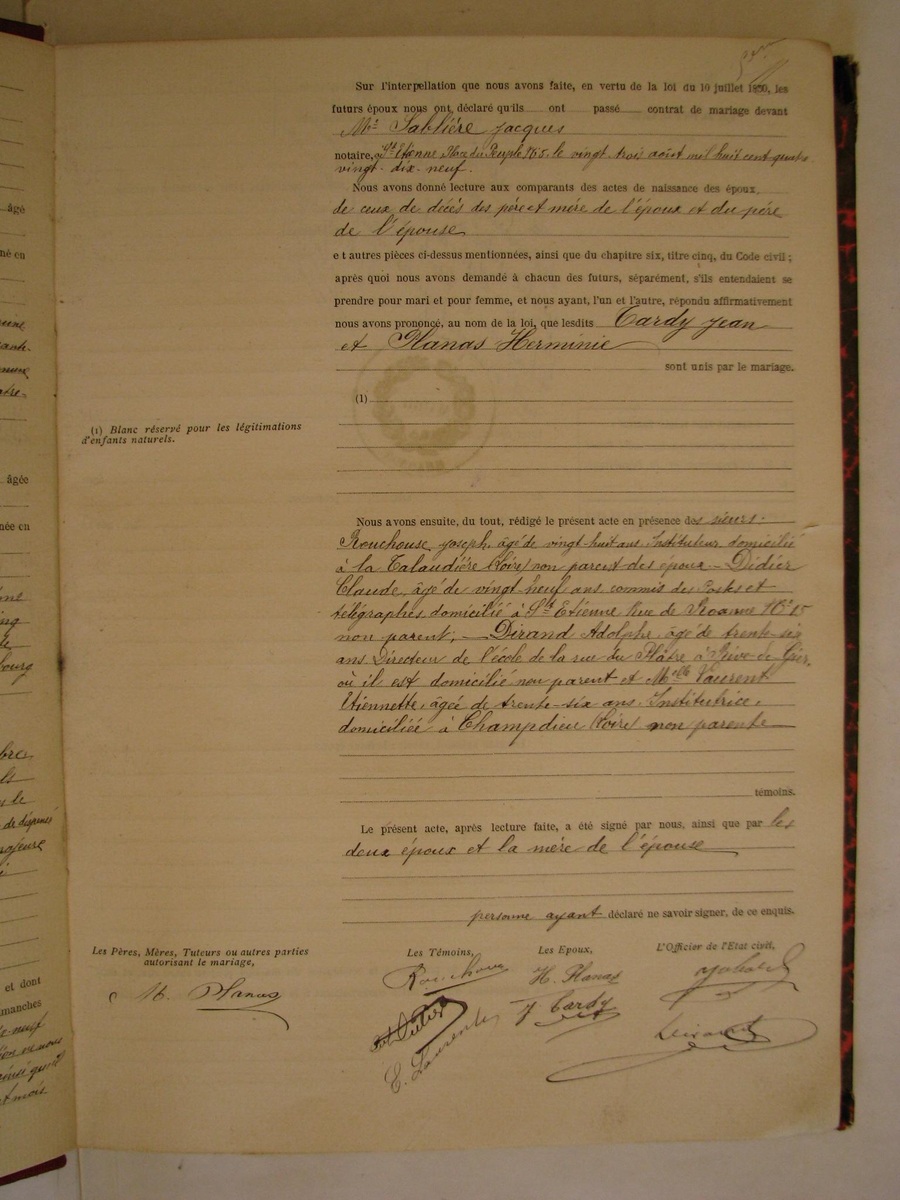 Sur l'interpellation que nous avons faite, en vertu de la loi du 10 juillet 1850, les
futurs époux nous ont déclaré qu'ils ont passé contrat de mariage devant
Me Sablière Jacques
notaire, à St Etienne Place du Peuple No 5, le vingt-trois août mil huit cent quatre
vingt-dix-neuf.
Nous avons donné lecture aux comparants des actes de naissance des époux,
de ceux de décès des père et mère de l'époux et du père
de l'épouse
et autres pièces ci-dessus mentionnées, ainsi que du chapitre six, titre cinq, du Code civil ;
après quoi nous avons demandé à chacun des futurs, séparément, s'ils entendaient se
prendre pour mari et pour femme, et nous ayant, l'un et l'autre, répondu affirmativement
nous avons prononcé, au nom de la loi, que lesdits Tardy Jean
et Planas Herminie
sont unis par le mariage.
(1)
(1) Blanc réservé pour les légitimations
d'enfants naturels.
Nous avons ensuite, du tout, rédigé le présent acte en présence des sieurs :
Rouchouse Joseph, âgé de vingt-huit ans, Instituteur, domicilié
à la Talaudière (Loire) non parent des époux – Didier
Claude, âgé de vingt-neuf ans commis des Postes et
télégraphes, domicilié à St Etienne, Rue de Roanne No 15
non parent; – Dirand Adolphe, âgé de trente-six
ans, Directeur de l'école de la rue du Plâtre à Rive de Gier,
où il est domicilié non parent et Melle Laurent
Etiennette, âgée de trente-six ans, Institutrice,
domiciliée à Champdieu (Loire) non parente
témoins.
Le présent acte, après lecture faite, a été signé par nous, ainsi que par les
deux époux et la mère de l'épouse
personne ayant déclaré ne savoir signer, de ce enquis.
Les Pères, Mères, Tuteurs ou autres parties
autorisant le mariage,
Les Témoins,
Les Epoux,
L'Officier de l'Etat civil,
M. Planas
Rouchouse
H. Planas
J. Tardy
Dirand
E. Laurent
âgé
né en
âgée
née en
et dont